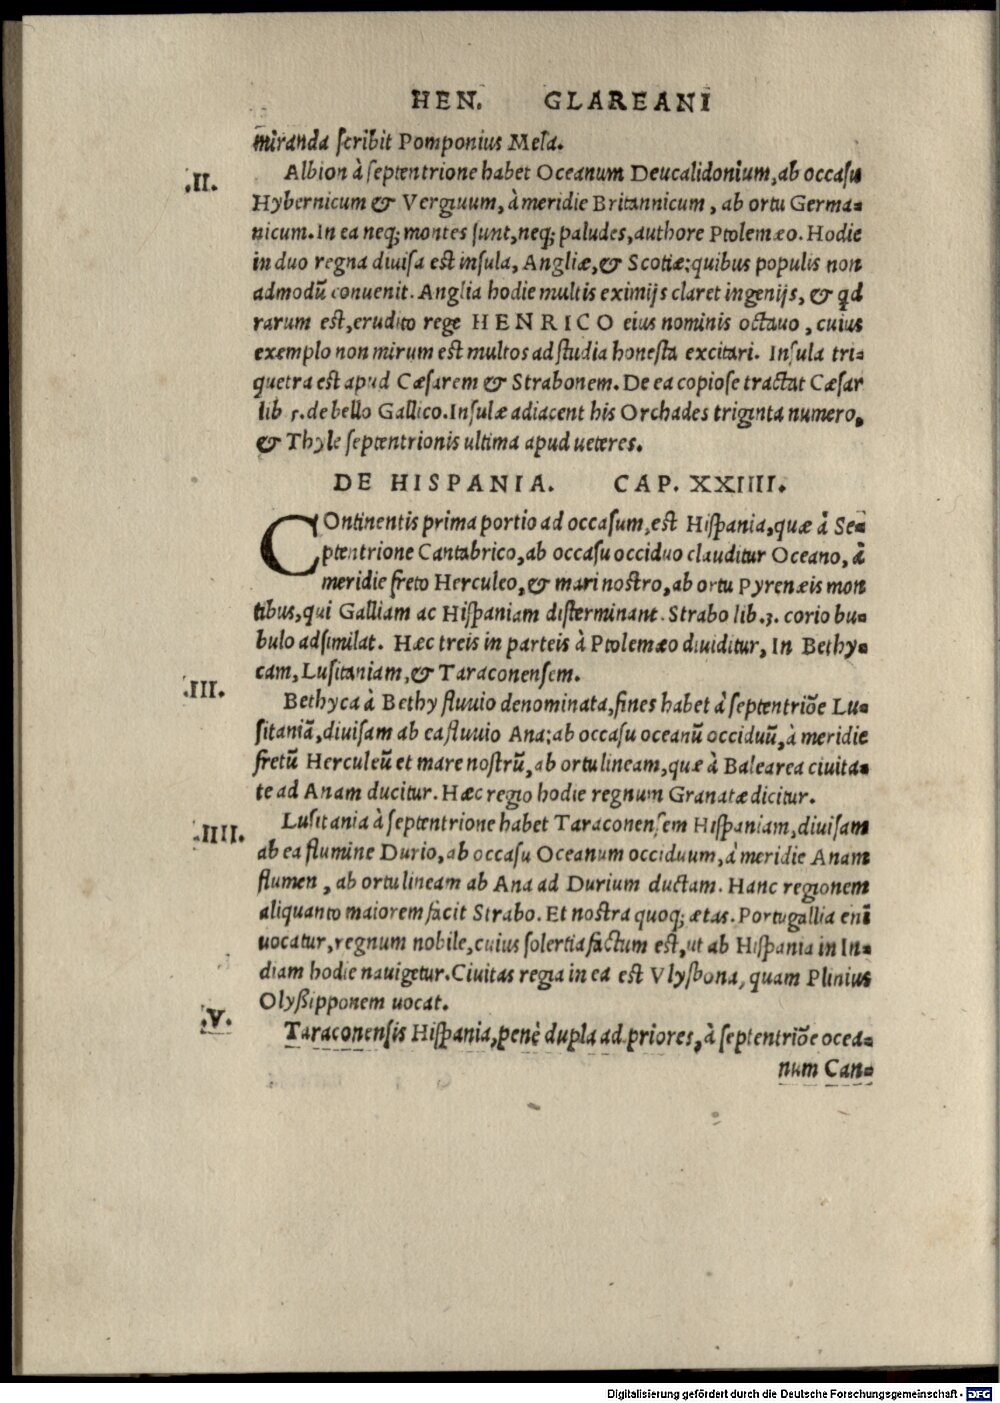 HEN. GLAREANI
miranda scribit Pomponius Mela.
.II. Albion à septentrione habet Oceanum Deucalidonium, ab occasu
Hybernicum & Vergiuum, à meridie Britannicum, ab ortu Germa-
nicum. In ea neq; montes sunt, neq; paludes, authore Ptolemæo. Hodie
in duo regna diuisa est insula, Angliæ, & Scotiæ: quibus populis non
admodũ conuenit. Anglia hodie multis eximijs claret ingenijs, & qd
rarum est, erudito rege HENRICO eius nominis octauo, cuius
exemplo non mirum est multos ad studia honesta excitari. Insula tri-
quetra est apud Cæsarem & Strabonem. De ea copiose tractat Cæsar
lib 5. de bello Gallico. Insulæ adiacent his Orchades triginta numero,
& Thyle septentrionis ultima apud ueteres.
DE HISPANIA. CAP. XXIIII.
COntinentis prima portio ad occasum, est Hispania, quæ à Se-
ptentrione Cantabrico, ab occasu occiduo clauditur Oceano, à
meridie freto Herculeo, & mari nostro, ab ortu Pyrenæis mon
tibus, qui Galliam ac Hispaniam disterminant. Strabo lib. 3. corio bu-
bulo adsimilat. Hæc treis in parteis à Ptolemæo diuiditur, In Bethy-
cam, Lusitaniam, & Taraconensem.
.III. Bethyca à Bethy fluuio denominata, fines habet à septentriõe Lu-
sitaniã, diuisam ab ea fluuio Ana: ab occasu oceanũ occiduũ, à meridie
fretũ Herculeũ et mare nostrũ, ab ortu lineam, quæ à Balearea ciuita-
te ad Anam ducitur. Hæc regio hodie regnum Granatæ dicitur.
.IIII. Lusitania à septentrione habet Taraconensem Hispaniam, diuisam
ab ea flumine Durio, ab occasu Oceanum occiduum, à meridie Anam
flumen, ab ortu lineam ab Ana ad Durium ductam. Hanc regionem
aliquanto maiorem facit Strabo. Et nostra quoq; ætas. Portugallia eni̅
uocatur, regnum nobile, cuius solertia factum est, ut ab Hispania in In-
diam hodie nauigetur. Ciuitas regia in ea est Vlysbona, quam Plinius
Olyßipponem uocat.
.V. Taraconensis Hispania, penè dupla ad priores, à septentriõe ocea-
num Can-
Digitalisierung gefördert durch die Deutsche Forschungsgemeinschaft - DFG